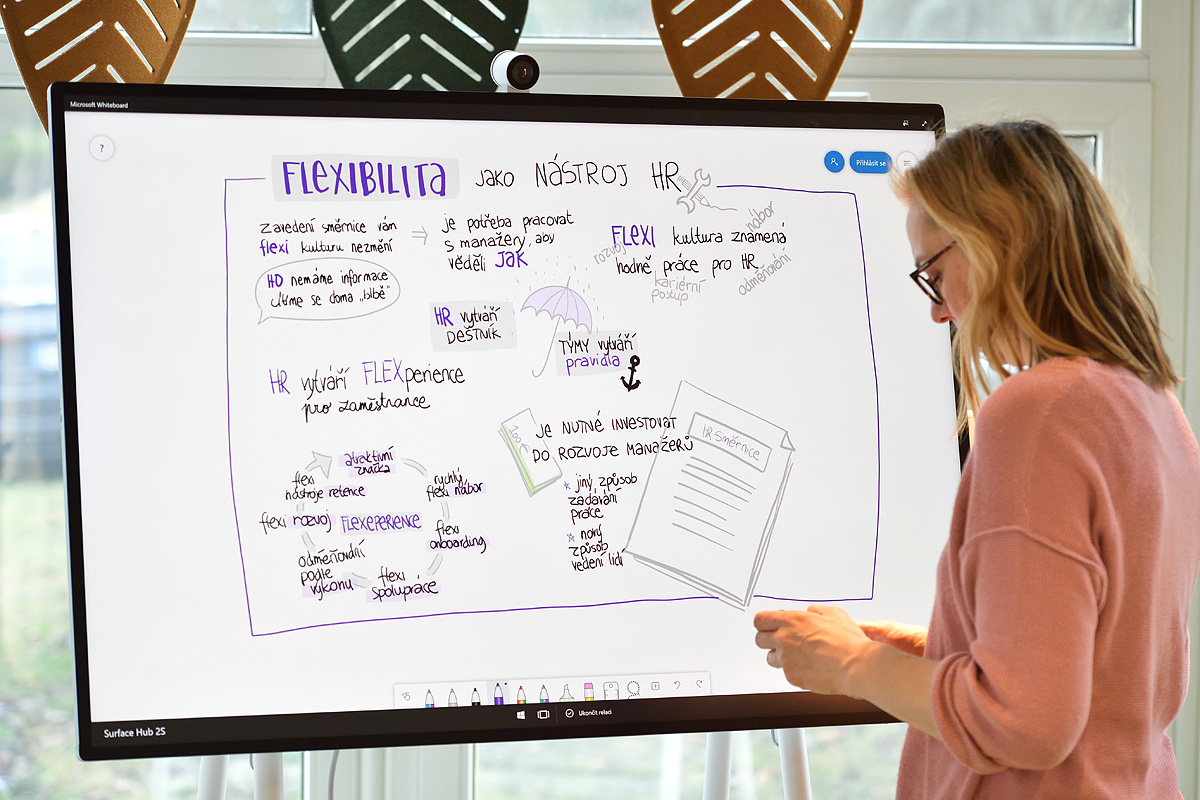 Microsoft Whiteboard
?
Přihlásit se
FLEXIBILITA JAKO NÁSTROJ HR
zavedení směrnice vám
flexi kulturu nezmění
je potřeba pracovat
s manažery, aby
věděli JAK
FLEXI kultura znamená
hodně práce pro HR
nábor
rozvoj
kariérní
postup
odměňování
HO nemáme informace
učíme se doma „blbě“
HR vytváří
DEŠTNÍK
TÝMY vytváří
pravidla
HR vytváří FLEXperience
pro zaměstnance
JE NUTNÉ INVESTOVAT
DO ROZVOJE MANAŽERŮ
jiný způsob
zadávání
práce
nový
způsob
vedení lidí
HR Směrnice
atraktivní
značka
rychlý
flexi nábor
flexi
onboarding
flexi
spolupráce
odměňování
podle
výkonu
flexi rozvoj
flexi
nástroje retence
FLEXEPERIENCE
Ukončit relaci
Surface Hub 2S